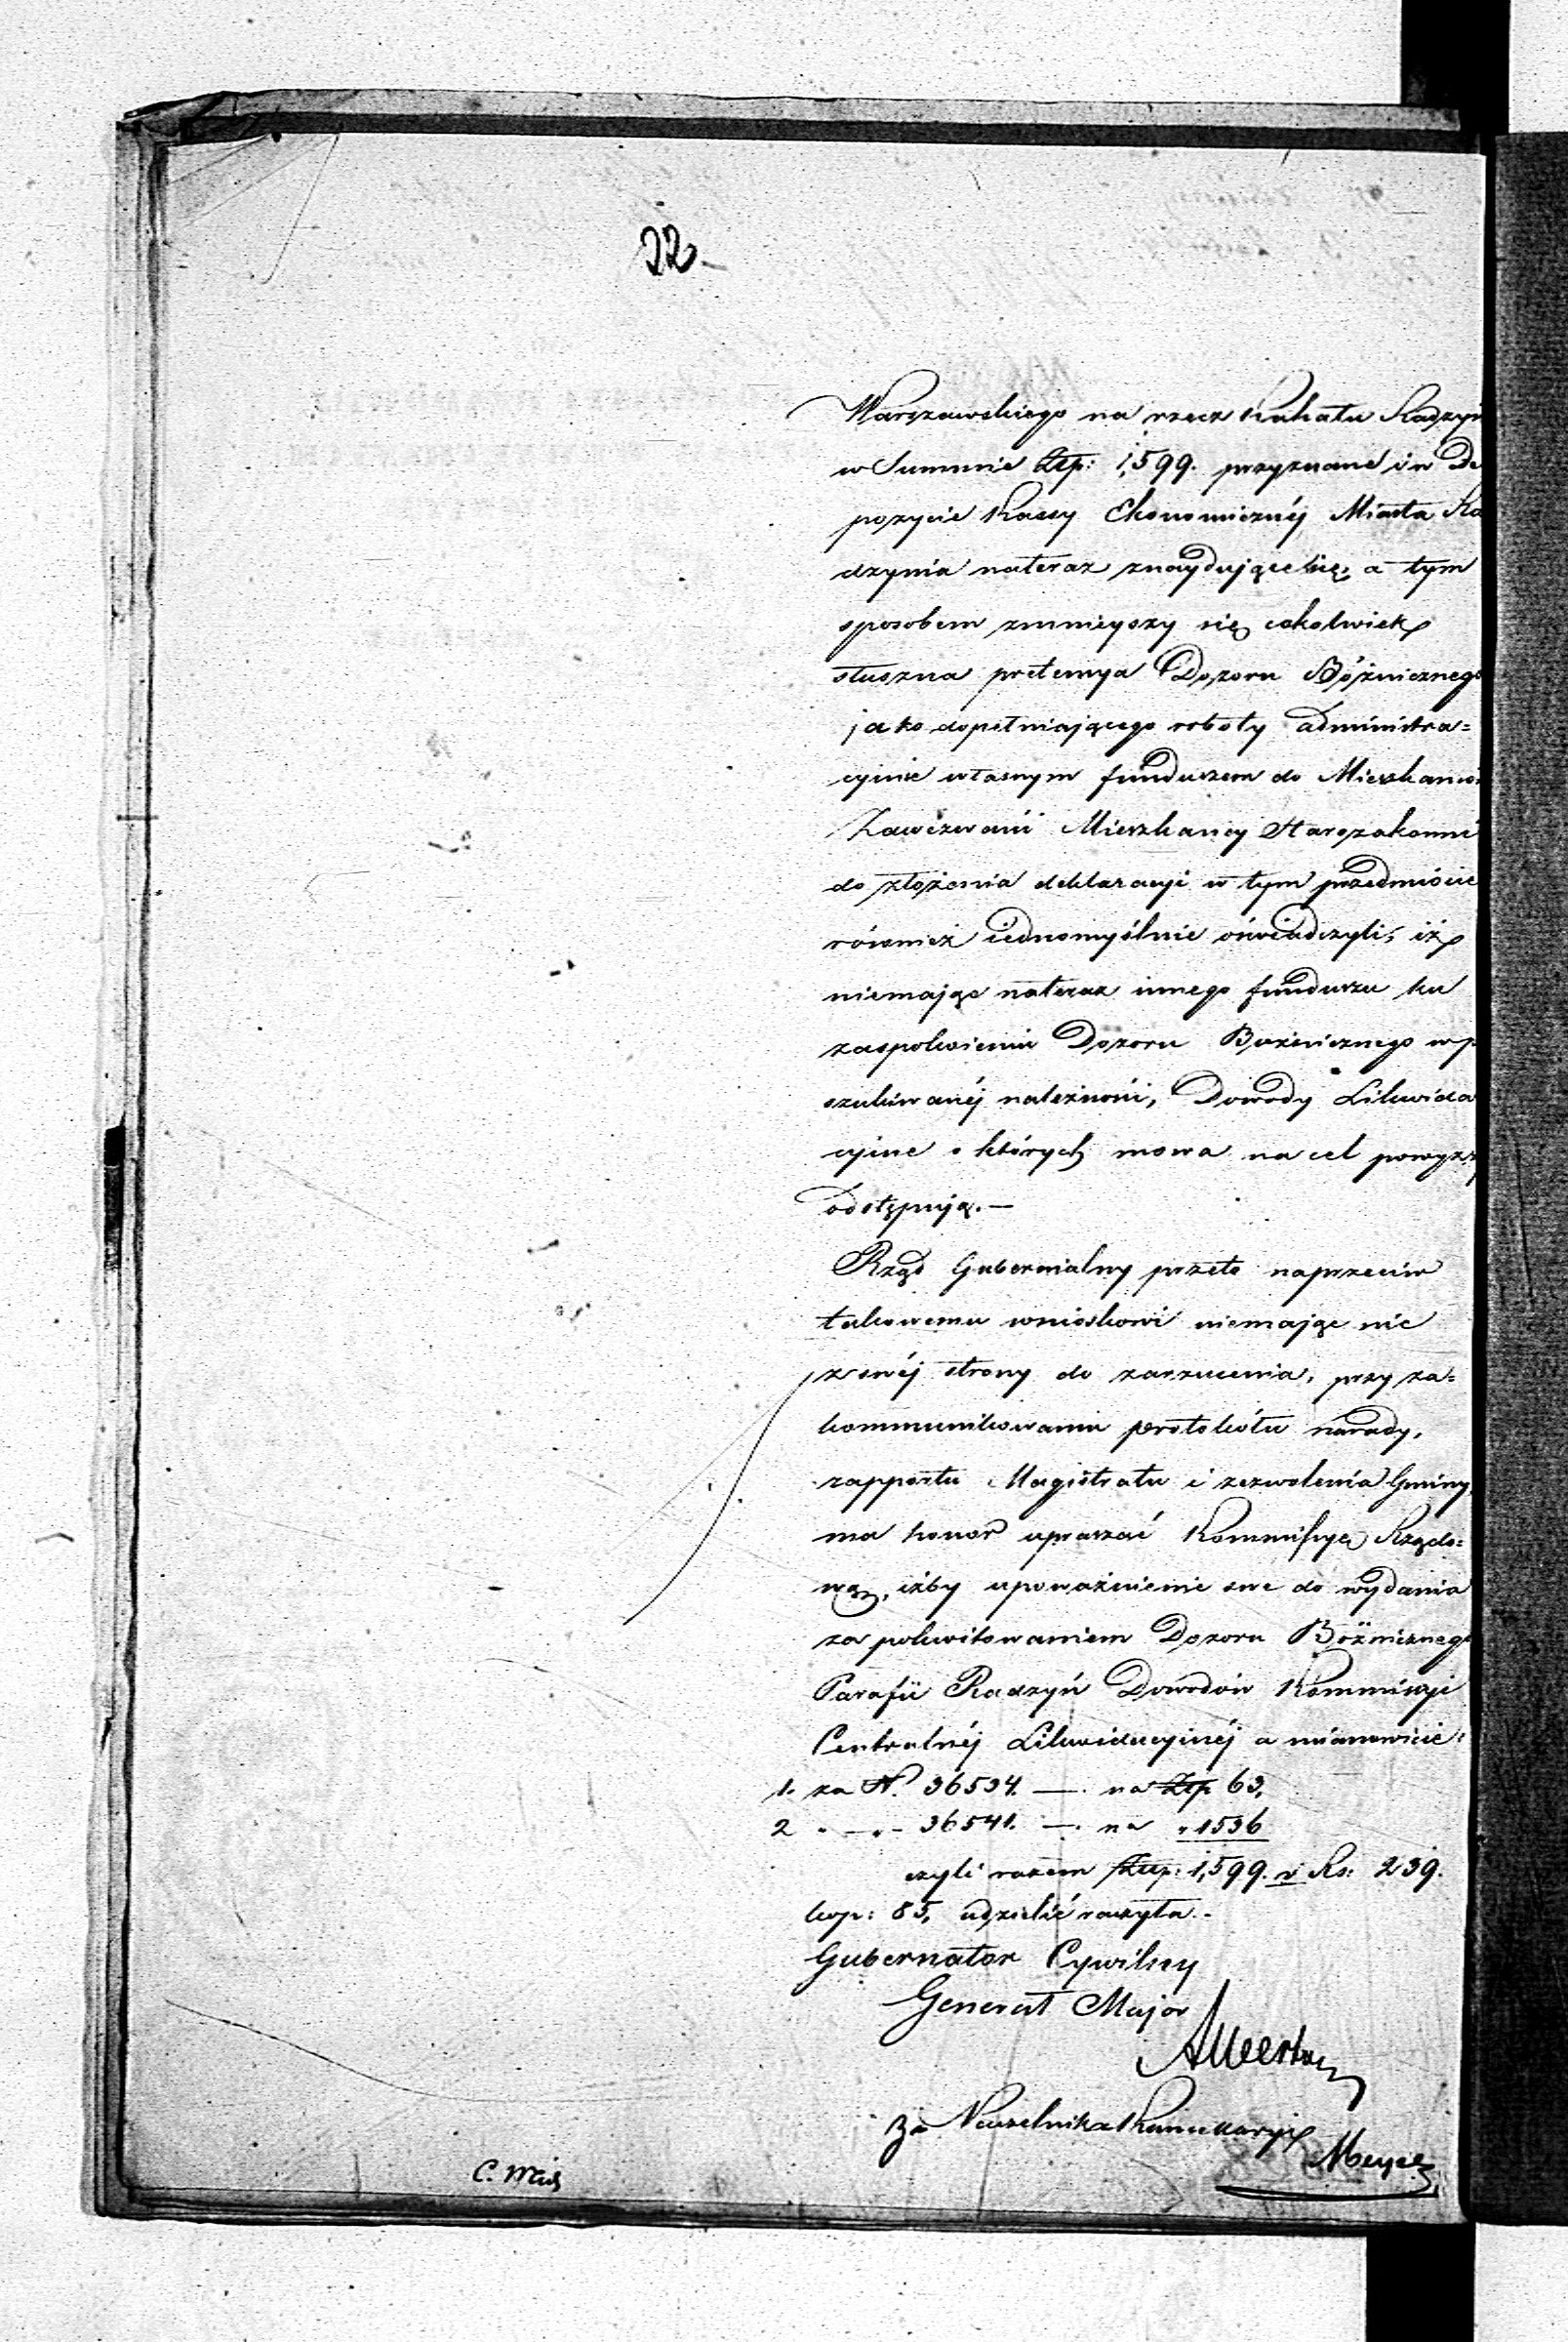 22.
Warszawskiego na rzecz Kahału Radzyń
w Summie Złp: 1,599. przyznane i w De
pozycie Kassy Ekonomicznéj Miasta Ra
dzynia nateraz znaydujące się, a tym
sposobem zmnieyszy się cokolwiek
słuszna pretensya Dozoru Bóźnicznego
jako dopełniającego roboty administra=
cyinie własnym funduszem do Mieszkańców
Zawezwani Mieszkańcy Starozakonni
do złożenia deklaracyi w tym przedmiocie
również iednomyślnie oświadczyli, iż
niemając nateraz innego funduszu ku
zaspokoieniu Dozoru Bużnicznego w p
szukiwanéj należności, Dowody Likwida
cyine o których mowa na cel powyższy
odstępują.—
Rząd Gubernialny przeto naprzeciw
takowemu wnioskowi niemając nic
z swéj strony do zarzucenia, przy za=
kommunikowaniu protokółu narady,
rapportu Magistratu i zezwolenia Gminy,
ma honor upraszać Kommissyą Rządo=
wą, iżby upoważnienie swe do wydania
za pokwitowaniem Dozoru Bóżnicznego
Parafii Radzyń Dowodów Kommissyi
Centralnéj Likwidacyinéj a mianowicie:
1. za N. 36534. —. na Złp 63,
2 " — " — 36541. —. na " 1536
czyli razem Złp: 1,599. v Rs: 239.
kop: 85, udzielić raczyła.-
Gubernator Cywilny
Generał Major
Za Naczelnika Kancellaryi